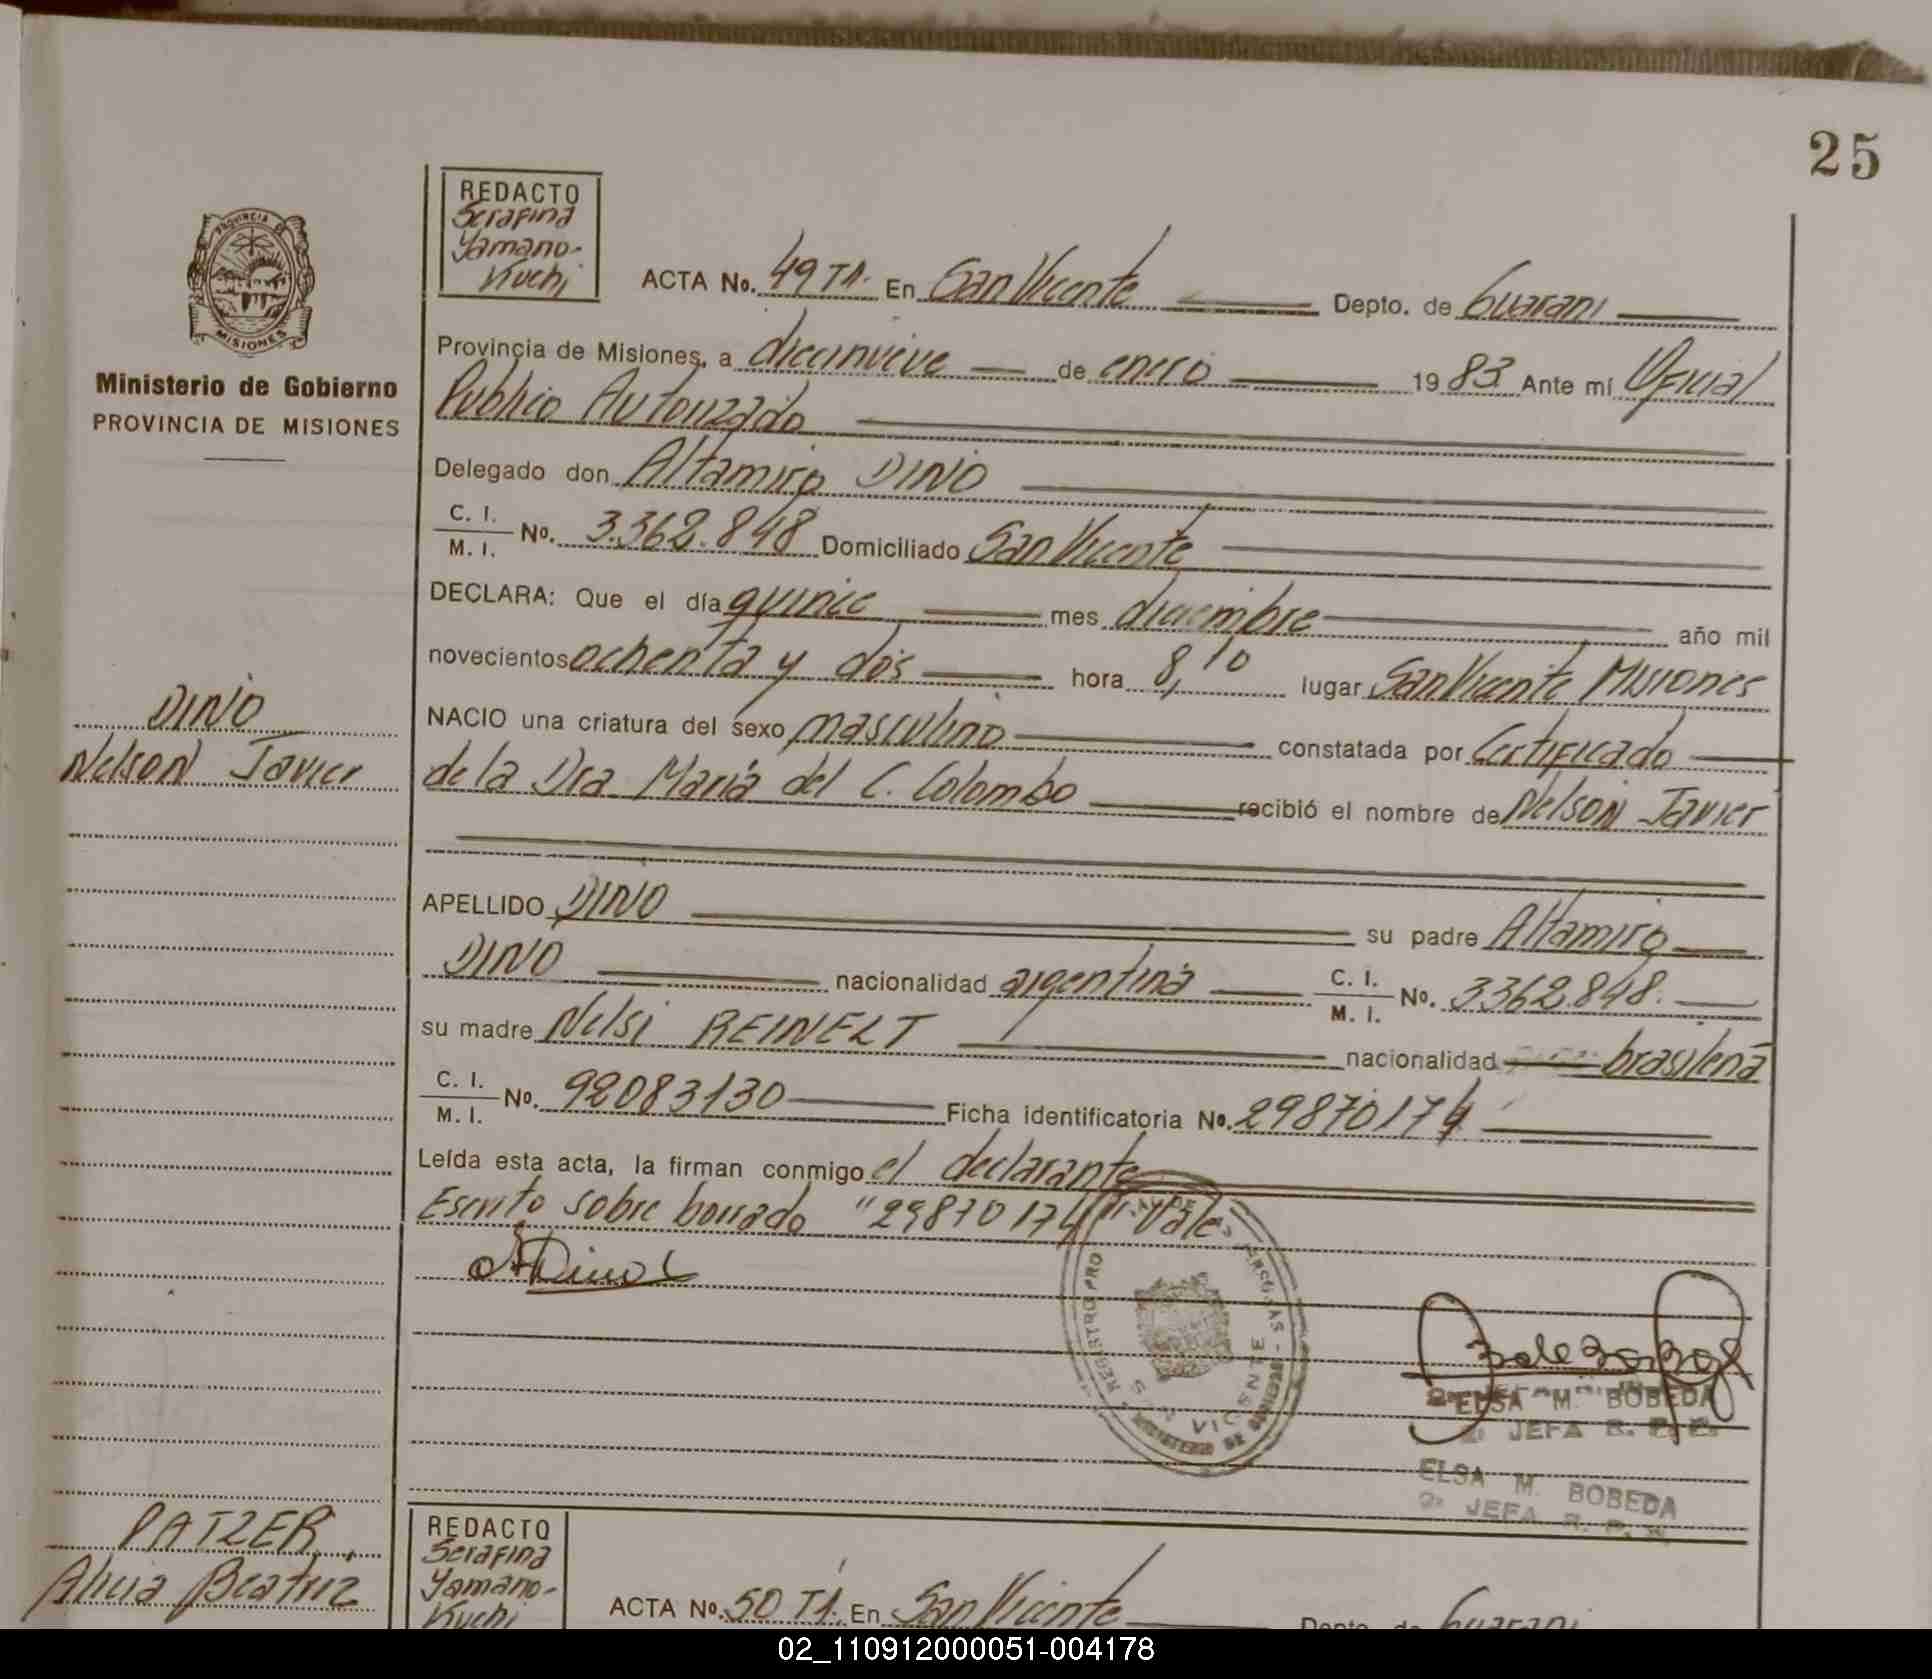 25
REDACTO
Serafina
Yamano-
Kuchi
PROVINCIA DE
MISIONES
Ministerio de Gobierno
PROVINCIA DE MISIONES
ACTA No. 49 TA. En San Vicente Depto. de Guarani
Provincia de Misiones, a diecinueve de enero 19 83. Ante mí Oficial
Publico Autorizado
Delegado don Altamiro DINO
C. I.
M. I. No. 3.362.848 Domiciliado San Vicente
DECLARA: Que el día quince mes diciembre año mil
novecientos ochenta y dos hora 8,10 lugar San Vicente Misiones
NACIO una criatura del sexo masculino constatada por Certificado
de la Dra Maria del C. Colombo recibió el nombre de Nelson Javier
DINO
Nelson Javier
APELLIDO DINO su padre Altamiro
DINO nacionalidad argentina C. I. M. I. No. 3362.848.
su madre Nelsi REINELT nacionalidad brasilena
C. I.
M. I. No. 92083130 Ficha identificatoria No. 29870174
Leída esta acta, la firman conmigo el declarante
Escrito sobre borrado "29870174" Vale
ADino
REGISTRO PRO DE LAS PERSONAS
SAN VICENTE
MINISTERIO DE GOBIERNO
ELSA M. BOBEDA
2ª JEFA R. P. P.
ELSA M. BOBEDA
2ª JEFA R. P.
PATZER,
Alicia Beatriz
REDACTO
Serafina
Yamano-
Kuchi
ACTA No. 50 TA. En San Vicente Depto. de Guarani
02_110912000051-004178